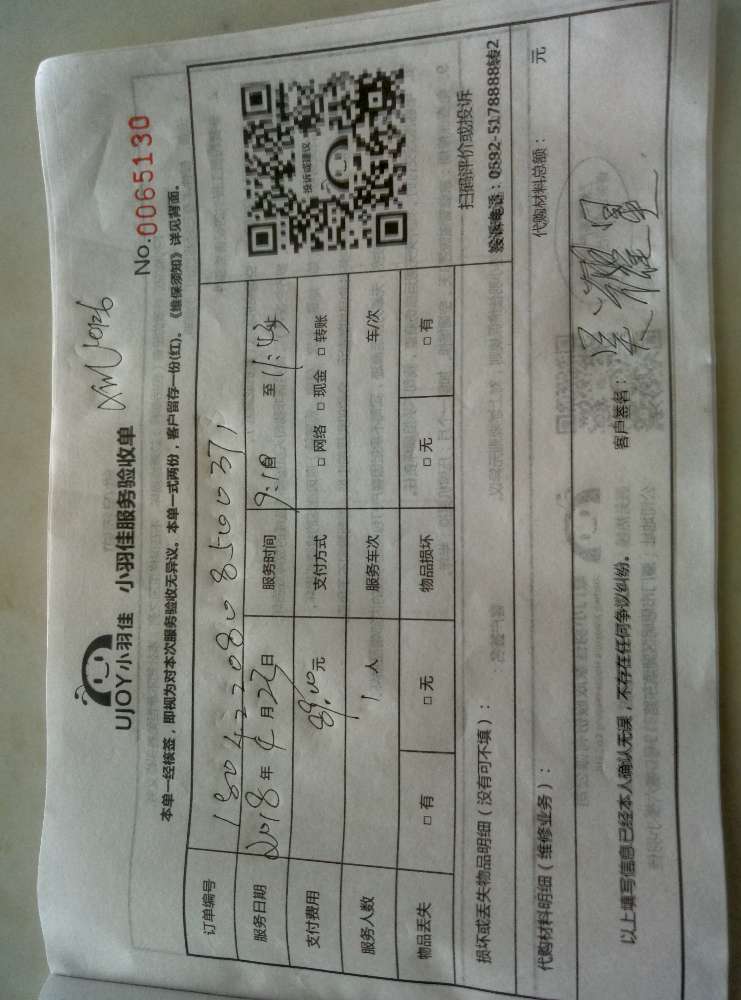 UJOY小羽佳 小羽佳服务验收单
No.0065130
本单一经核签，即视为对本次服务验收无异议。本单一式两份，客户留存一份(红)。《维保须知》详见背面。
订单编号 1804220808500371
服务日期 2018年4月23日 服务时间 至11:43
支付费用 元 支付方式 □网络 □现金 □转账
服务人数 1人 服务车次 车/次
物品丢失 □有 □无 物品损坏 □无 □有
投诉或建议
扫码评价或投诉
投诉电话：0592-5178888转2
损坏或丢失物品明细（没有可不填）：
代购材料明细（维修业务）： 代购材料总额： 元
以上填写信息已经本人确认无误，不存在任何争议纠纷。 客户签名：